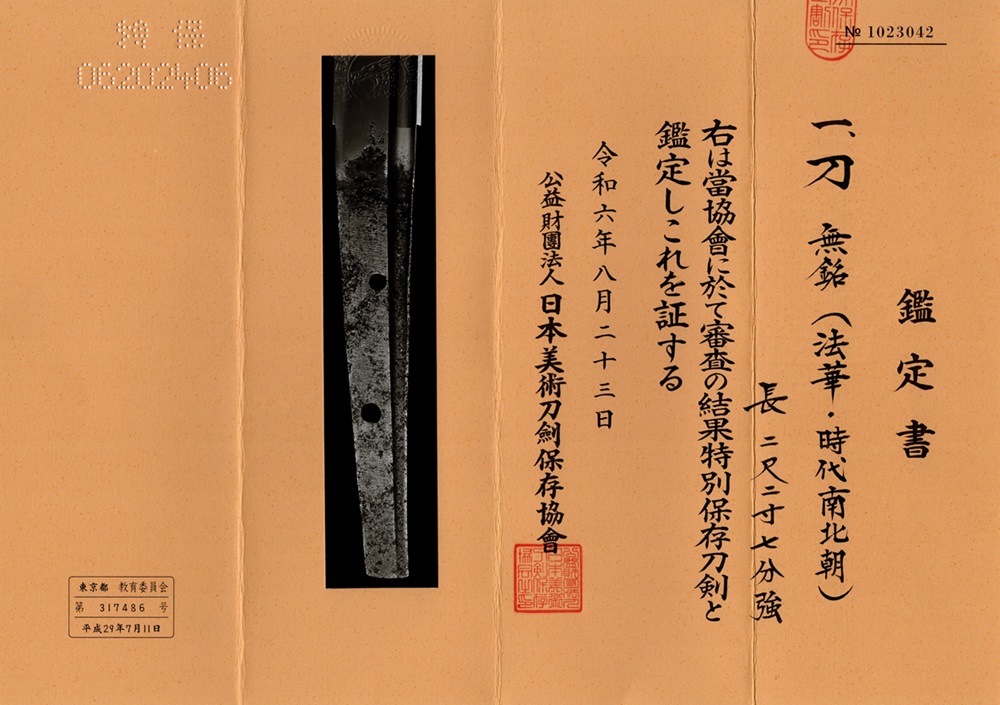 № 1023042
鑑定書
一、刀 無銘(法華・時代南北朝)
長 二尺二寸七分強
右は當協會に於て審査の結果特別保存刀剣と
鑑定しこれを証する
令和六年八月二十三日
公益財團法人 日本美術刀劍保存協會
特保
06202406
東京都 教育委員会
第 317486 号
平成29年7月11日